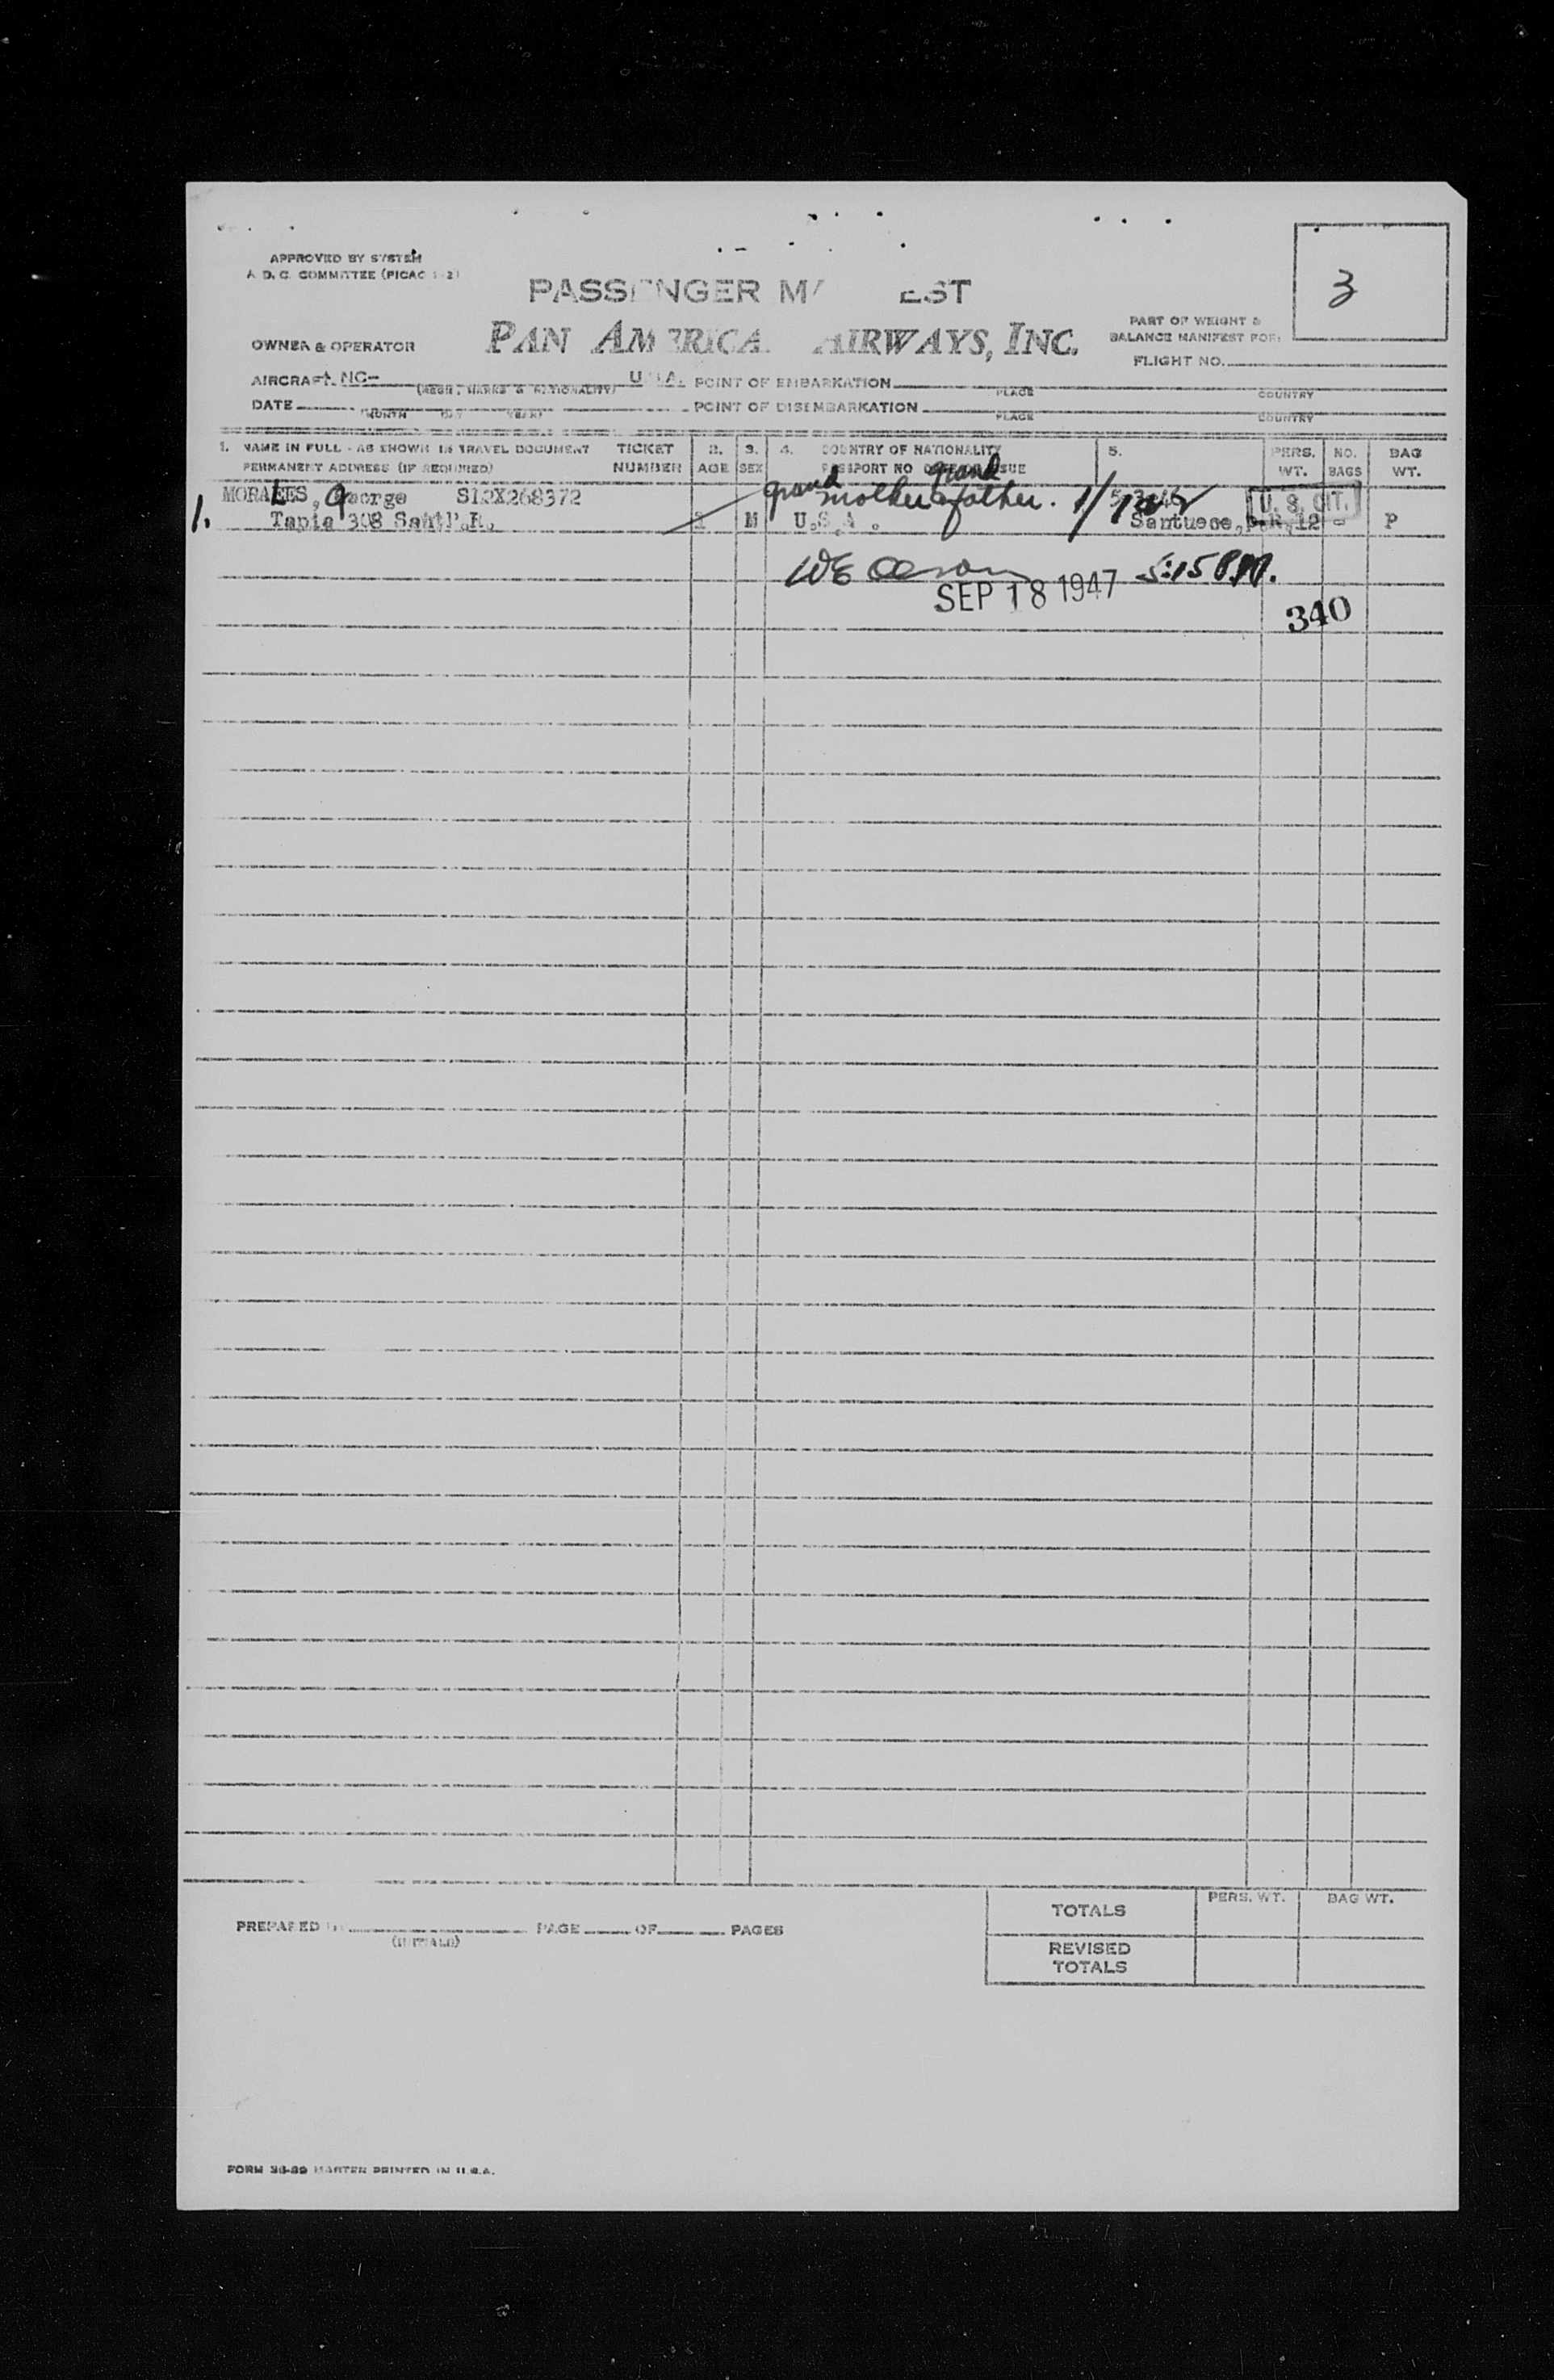 APPROVED BY SYSTEM
A. D. C. COMMITTEE (PICAO 1-2)
3
PASSENGER M EST
PART OF WEIGHT &
OWNER & OPERATOR
PAN AMERICA AIRWAYS, INC.
BALANCE MANIFEST FOR:
FLIGHT NO.
AIRCRAFT NC- U.S.A. POINT OF EMBARKATION
(REGN. MARKS & NATIONALITY) PLACE COUNTRY
DATE POINT OF DISEMBARKATION
MONTH DAY YEAR PLACE COUNTRY
1. NAME IN FULL - AS SHOWN IN TRAVEL DOCUMENT TICKET 2. 3. 4. COUNTRY OF NATIONALITY 5. PERS. NO. BAG
PERMANENT ADDRESS (IF REQUIRED) NUMBER AGE SEX PASSPORT NO WT. BAGS WT.
grand grand
MORALES, George S12X268372 mother & father. U. S. CIT.
1. Tapia 308 Sant P.R. M U.S.A. Santuece, P.R. 12 - P
5:15 P.M.
SEP 18 1947
340
PREPARED BY PAGE OF PAGES
(INITIALS)
TOTALS PERS. WT. BAG WT.
REVISED
TOTALS
FORM MASTER PRINTED IN U.S.A.